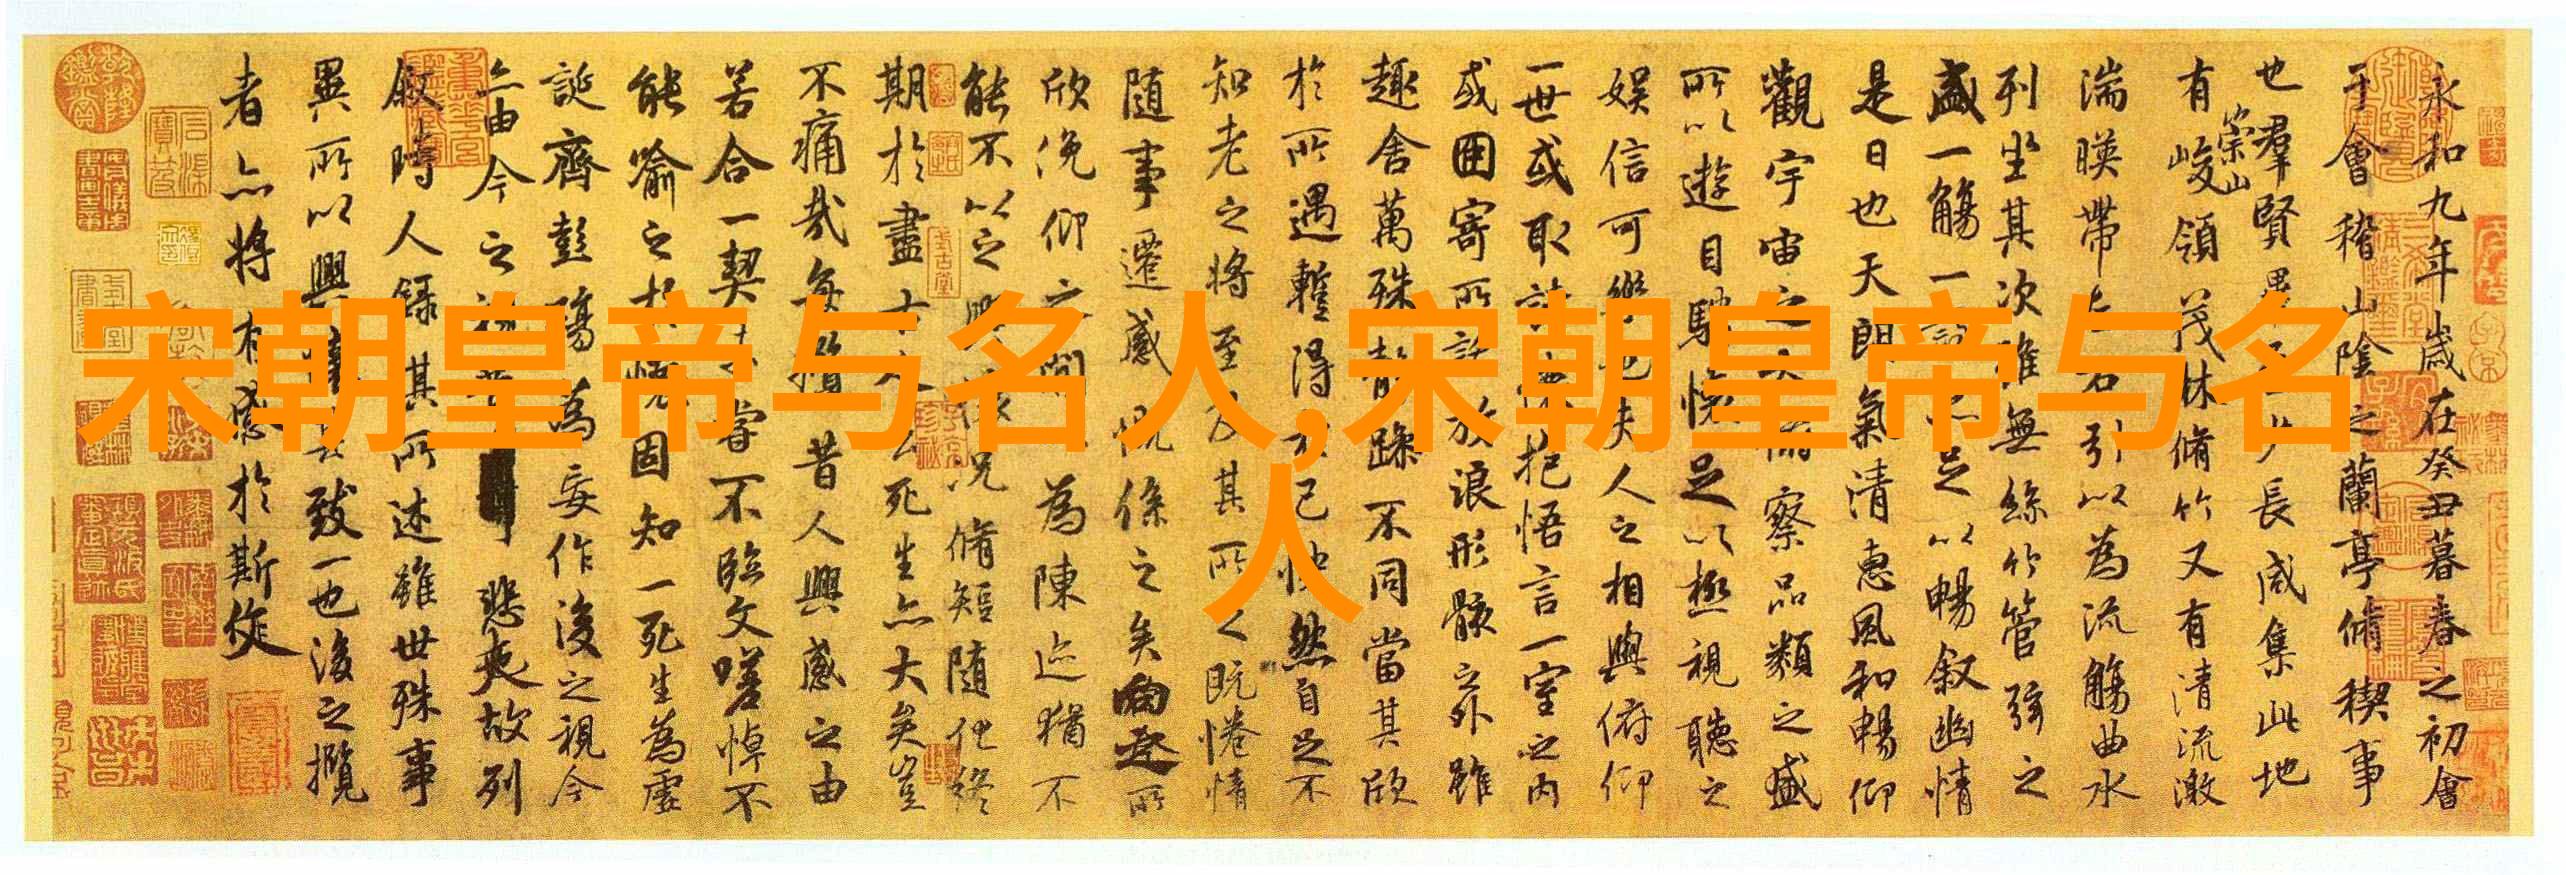 宋朝皇帝与名人,宋朝皇帝与名
人
永和九年歲在癸丑暮春之初會
于會稽山陰之蘭亭脩禊事
也羣賢畢至少長咸集此地
有崇山峻領茂林脩竹又有清流激
湍暎帶左右引以為流觴曲水
列坐其次雖無絲竹管弦之
盛一觴一詠亦足以暢叙幽情
是日也天朗氣清惠風和暢仰
觀宇宙之大俯察品類之盛
所以遊目騁懷足以極視聽之
娛信可樂也夫人之相與俯仰
一世或取諸懷抱悟言一室之內
或因寄所託放浪形骸之外雖
趣舍萬殊靜躁不同當其欣
於所遇蹔得於己怏然自足不
知老之將至及其所之既惓情
隨事遷感慨係之矣向之所
欣俛仰之閒以為陳迹猶不
能不以之興懷況脩短隨化終
期於盡古人云死生亦大矣豈
不痛哉每攬昔人興感之由
若合一契未嘗不臨文嗟悼不
能喻之於懷固知一死生為虛
誕齊彭殤為妄作後之視今
亦由今之視昔悲夫故列
叙時人錄其所述雖世殊事
異所以興懷其致一也後之攬
者亦將有感於斯文